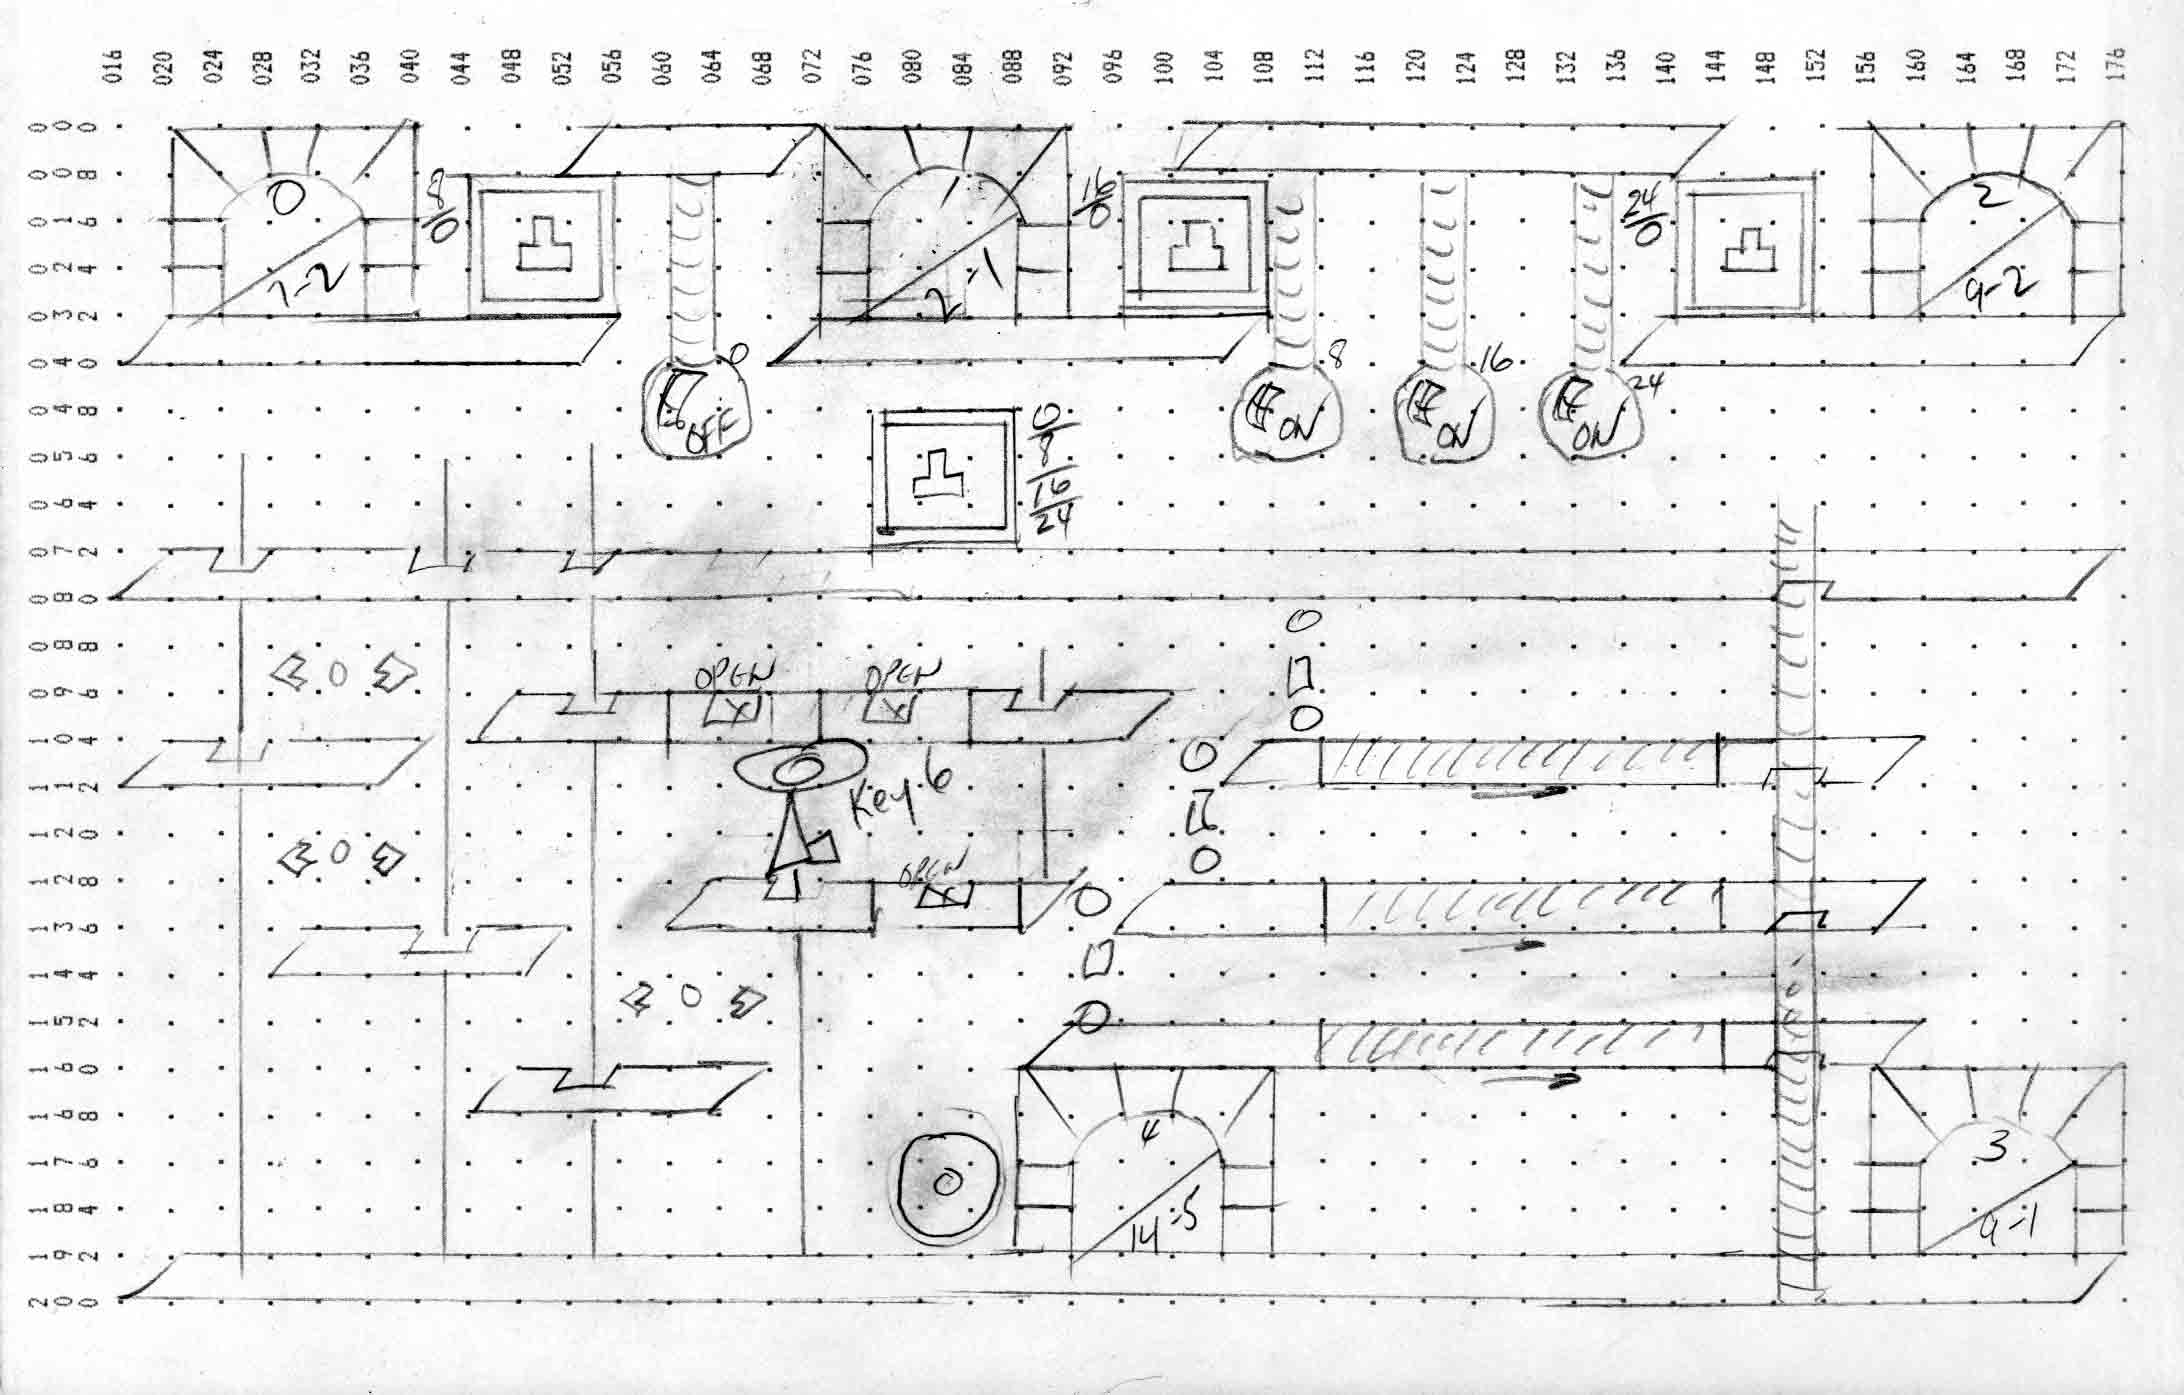 016 020 024 028 032 036 040 044 048 052 056 060 064 068 072 076 080 084 088 092 096 100 104 108 112 116 120 124 128 132 136 140 144 148 152 156 160 164 168 172 176
000
008
016
024
032
040
048
056
064
072
080
088
096
104
112
120
128
136
144
152
160
168
176
184
192
200
0
1-2
8/0
1
2-1
16/0
24/0
2
9-2
0
OFF
8
ON
16
ON
24
ON
0
8
16
24
OPEN
OPEN
Key 6
OPEN
4
14-5
3
9-1